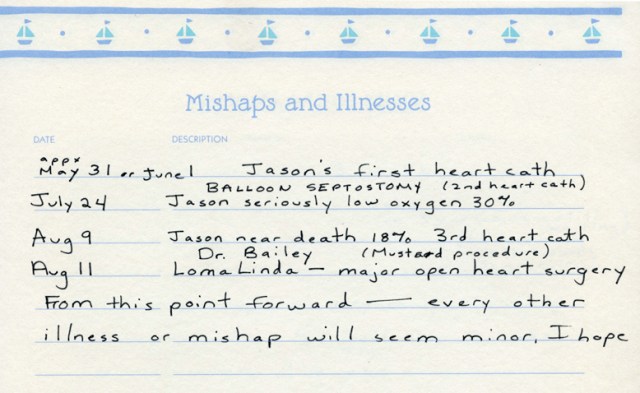 Mishaps and Illnesses
DATE DESCRIPTION
appx
May 31 or June 1 Jason's first heart cath
BALLOON SEPTOSTOMY (2nd heart cath)
July 24 Jason seriously low oxygen 30%
Aug 9 Jason near death 18% 3rd heart cath
Dr. Bailey (Mustard procedure)
Aug 11 Loma Linda — major open heart surgery
From this point forward — every other
illness or mishap will seem minor, I hope